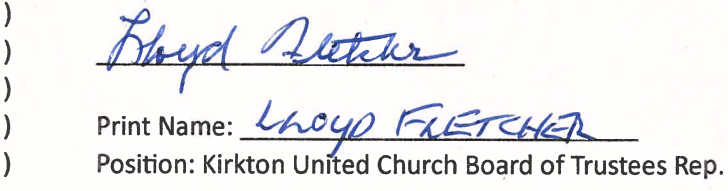 )
) Lloyd Fletcher
)
) Print Name: LLOYD FLETCHER
) Position: Kirkton United Church Board of Trustees Rep.